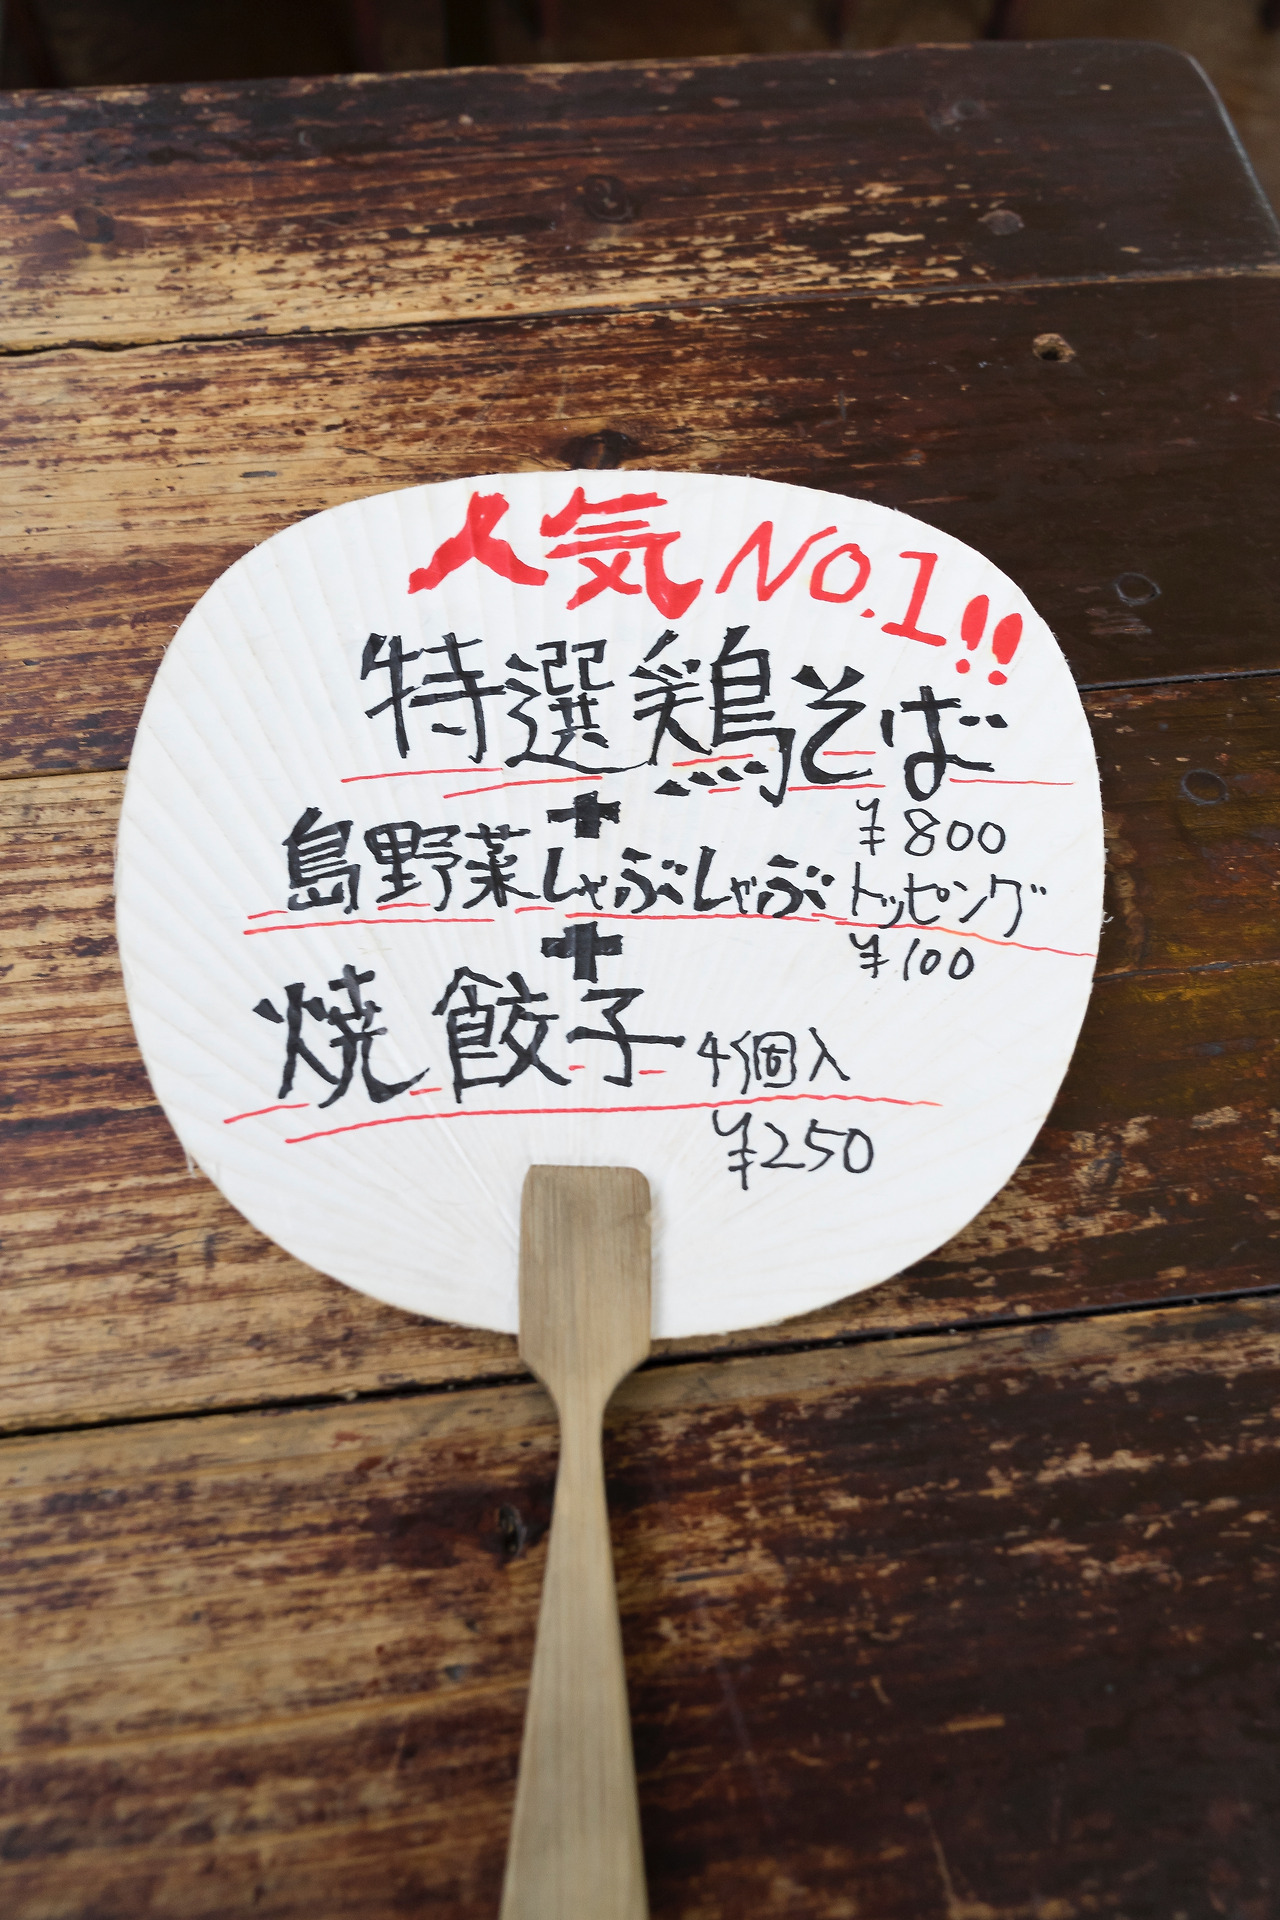 人気NO.1!!
特選鶏そば
¥800
+
島野菜しゃぶしゃぶトッピング
¥100
+
焼餃子 4個入
¥250